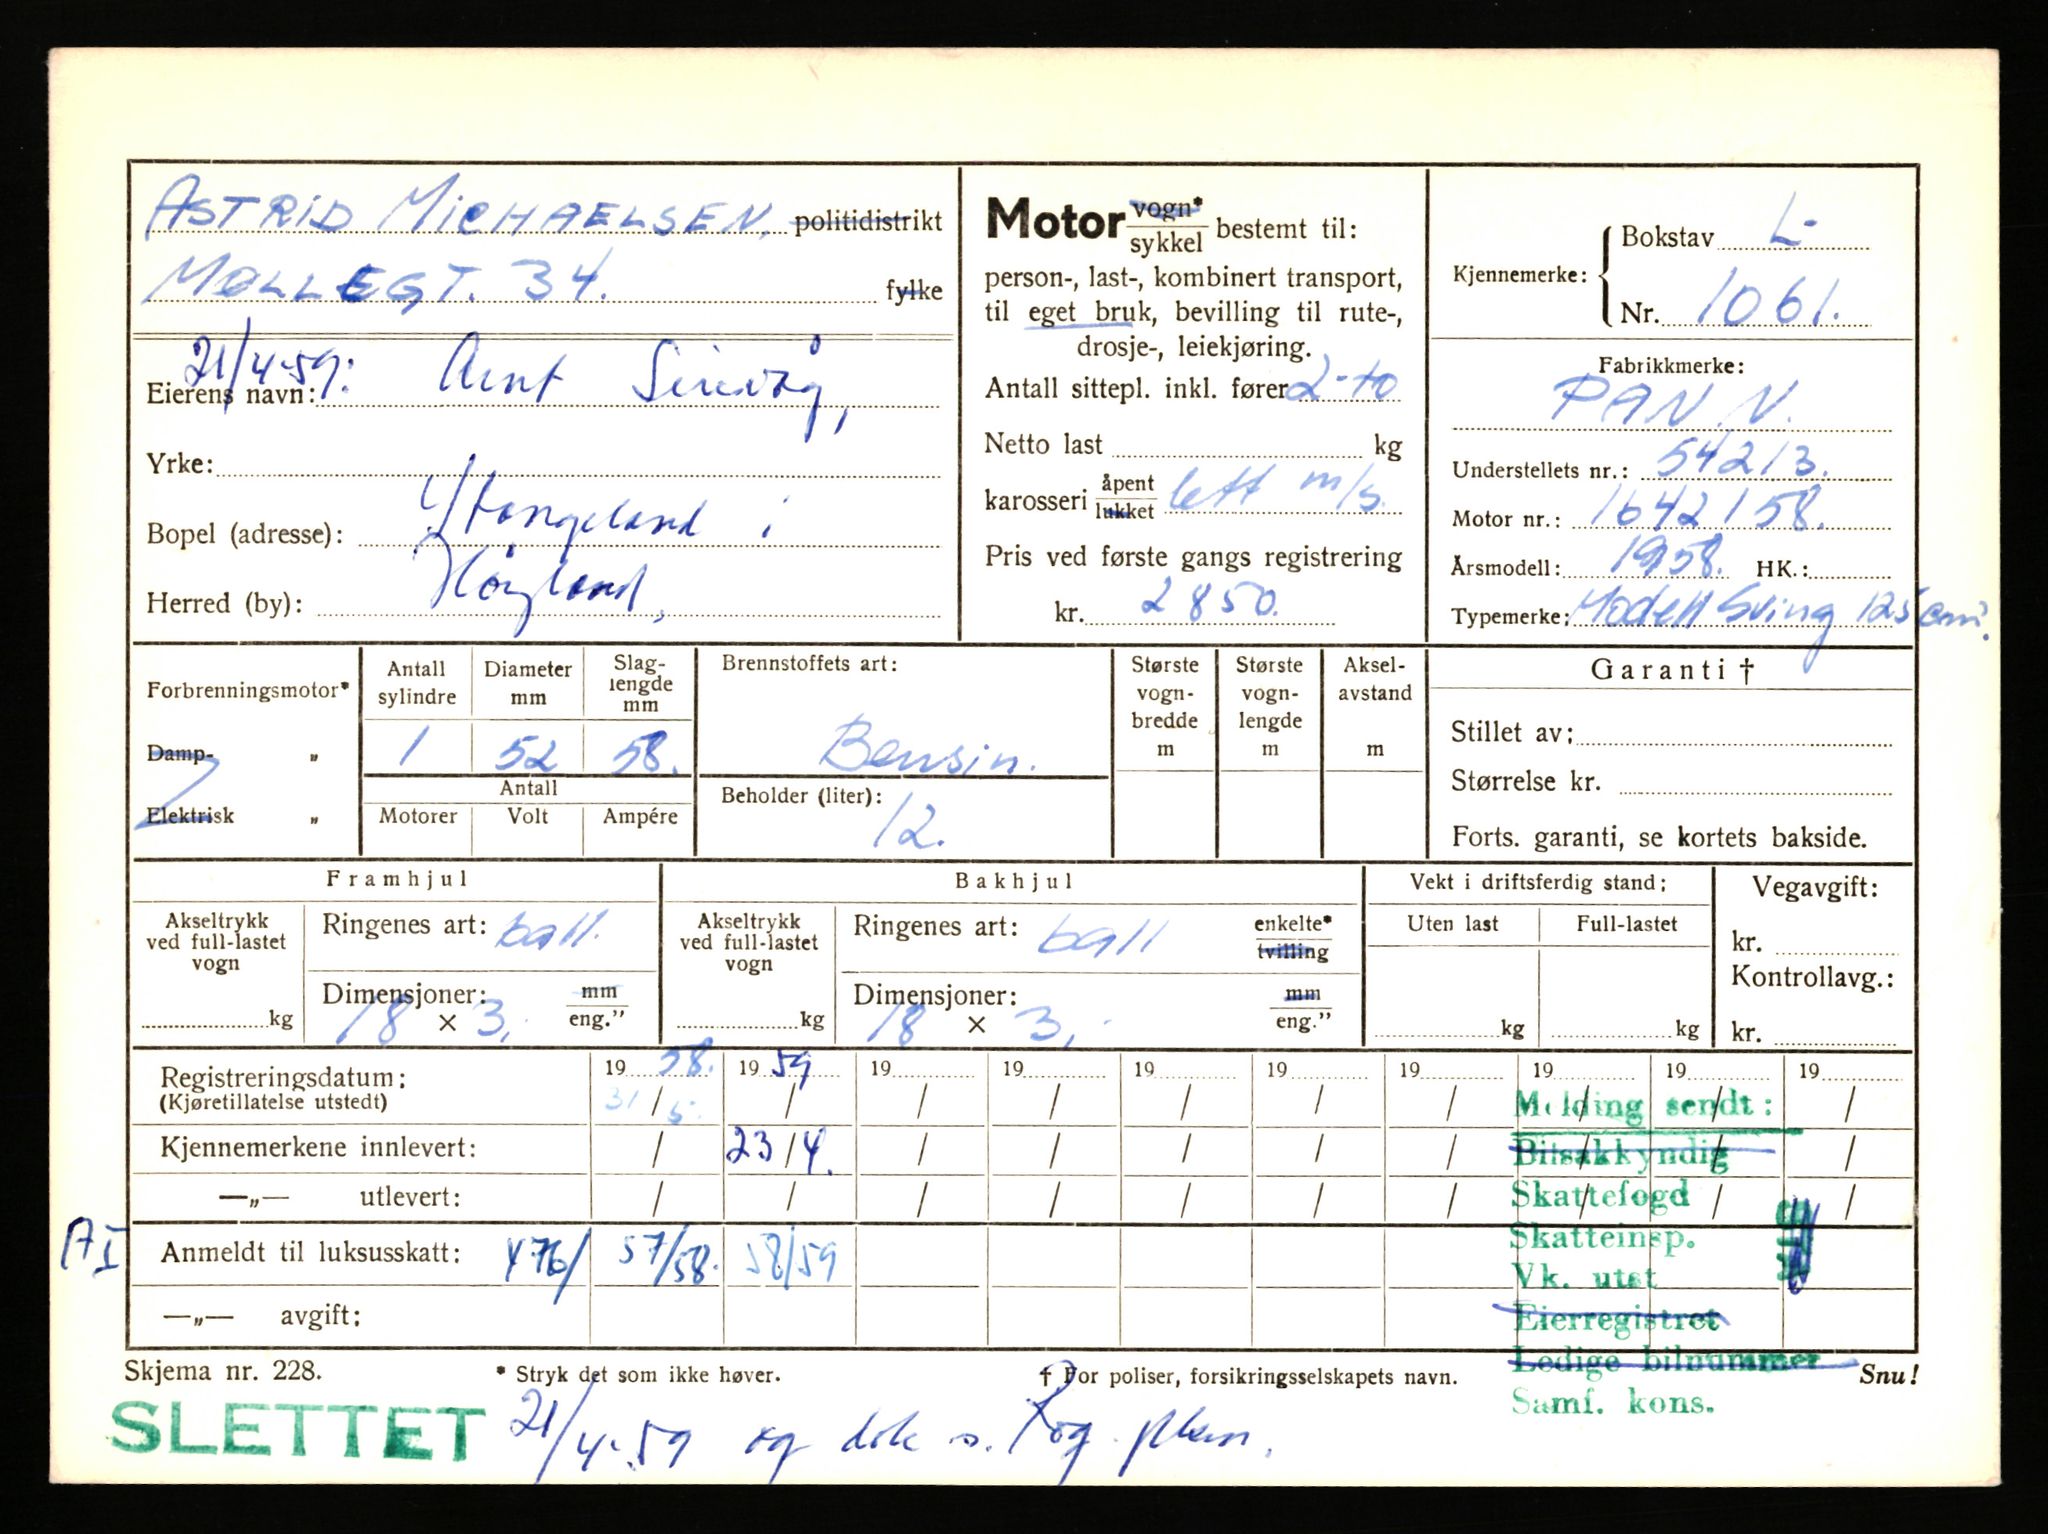 ASTRID MICHAELSEN, politidistrikt
MØLLEGT. 34. fylke
21/4-59: Arnt Sirevåg,
Eierens navn:
Yrke:
Bopel (adresse): Stangeland i
Herred (by): Høyland,
Motor vogn*/sykkel bestemt til:
person-, last-, kombinert transport,
til eget bruk, bevilling til rute-,
drosje-, leiekjøring.
Antall sittepl. inkl. fører 2-to
Netto last kg
karosseri åpent/lukket lett m/s.
Pris ved første gangs registrering
kr. 2850.
Kjennemerke: Bokstav L-
Nr. 1061.
Fabrikkmerke:
PAN N.
Understellets nr.: 54213.
Motor nr.: 1642158.
Årsmodell: 1958. HK.:
Typemerke: Modell Sving 125 cm³.
Forbrenningsmotor*
Damp- „
Elektrisk „
Antall sylindre 1
Diameter mm 52
Slaglengde mm 58.
Antall
Motorer Volt Ampére
Brennstoffets art:
Bensin.
Beholder (liter):
12.
Største vogn-bredde m
Største vogn-lengde m
Aksel-avstand m
Garanti †
Stillet av:
Størrelse kr.
Forts. garanti, se kortets bakside.
Framhjul
Akseltrykk ved full-lastet vogn
kg
Ringenes art: ball.
Dimensjoner: mm/eng."
18 × 3,-
Bakhjul
Akseltrykk ved full-lastet vogn
kg
Ringenes art: ball enkelte*/tvilling
Dimensjoner: mm/eng."
18 × 3,-
Vekt i driftsferdig stand:
Uten last Full-lastet
kg kg
Vegavgift:
kr.
Kontrollavg.:
kr.
Registreringsdatum: 19 58. 19 59 19 19 19 19 19 19 19 19
(Kjøretillatelse utstedt) 31/5. / / / / / / / / /
Kjennemerkene innlevert: / 23/4. / / / / / / / /
—„— utlevert: / / / / / / / / / /
AI Anmeldt til luksusskatt: 476/ 57/58. 58/59
—„— avgift:
Melding sendt:
Bilsakkyndig
Skattefogd
Skatteinsp.
Vk. utst
Eierregistret
Ledige bilnummer
Samf. kons.
Skjema nr. 228. * Stryk det som ikke høver. † For poliser, forsikringsselskapets navn. Snu!
SLETTET 21/4-59